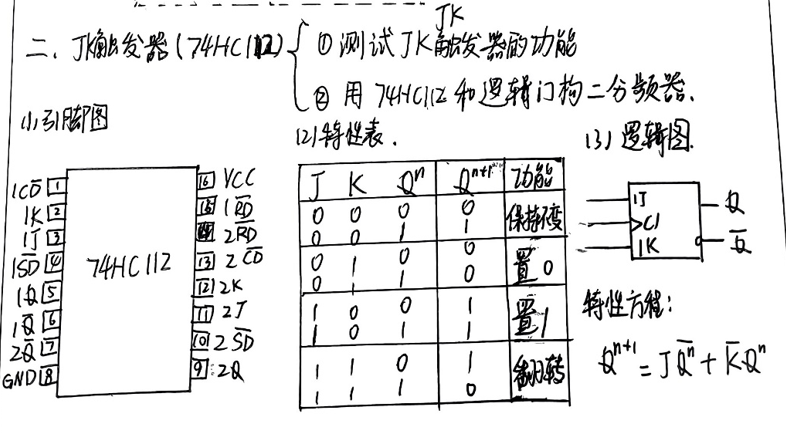 二、JK触发器(74HC112) ① 测试JK触发器的功能
JK
② 用74HC112和逻辑门构二分频器.
(1)引脚图
(2)特性表.
(3)逻辑图.
1CD̅ 1
1K 2
1J 3
1S̅D̅ 4
1Q 5
1Q̅ 6
2Q̅ 7
GND 8
74HC112
16 VCC
15 1R̅D̅
14 2R̅D̅
13 2C̅D̅
12 2K
11 2J
10 2S̅D̅
9 2Q
J K Qⁿ Qⁿ⁺¹ 功能
0 0 0 0 保持不变
0 0 1 1
0 1 0 0 置0
0 1 1 0
1 0 0 1 置1
1 0 1 1
1 1 0 1 翻转
1 1 1 0
1J
C1
1K
Q
Q̅
特性方程:
Qⁿ⁺¹ = JQ̅ⁿ + K̅Qⁿ